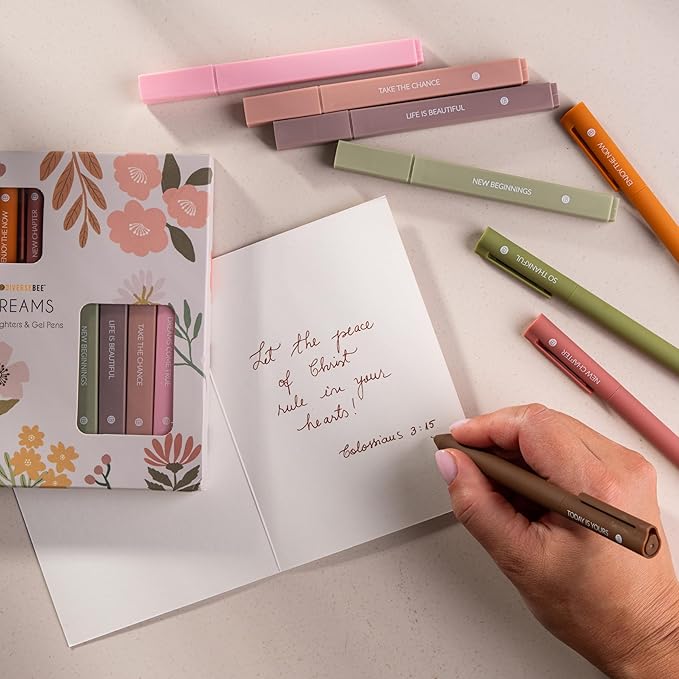 TAKE THE CHANCE
LIFE IS BEAUTIFUL
NEW BEGINNINGS
ENJOY THE NOW
SO THANKFUL
NEW CHAPTER
TODAY IS YOURS
ENJOY THE NOW
NEW CHAPTER
DIVERSEBEE™
REAMS
ghters & Gel Pens
NEW BEGINNINGS
LIFE IS BEAUTIFUL
TAKE THE CHANCE
DREAMS COME TRUE
Let the peace
of Christ
rule in your
hearts!
Colossians 3:15